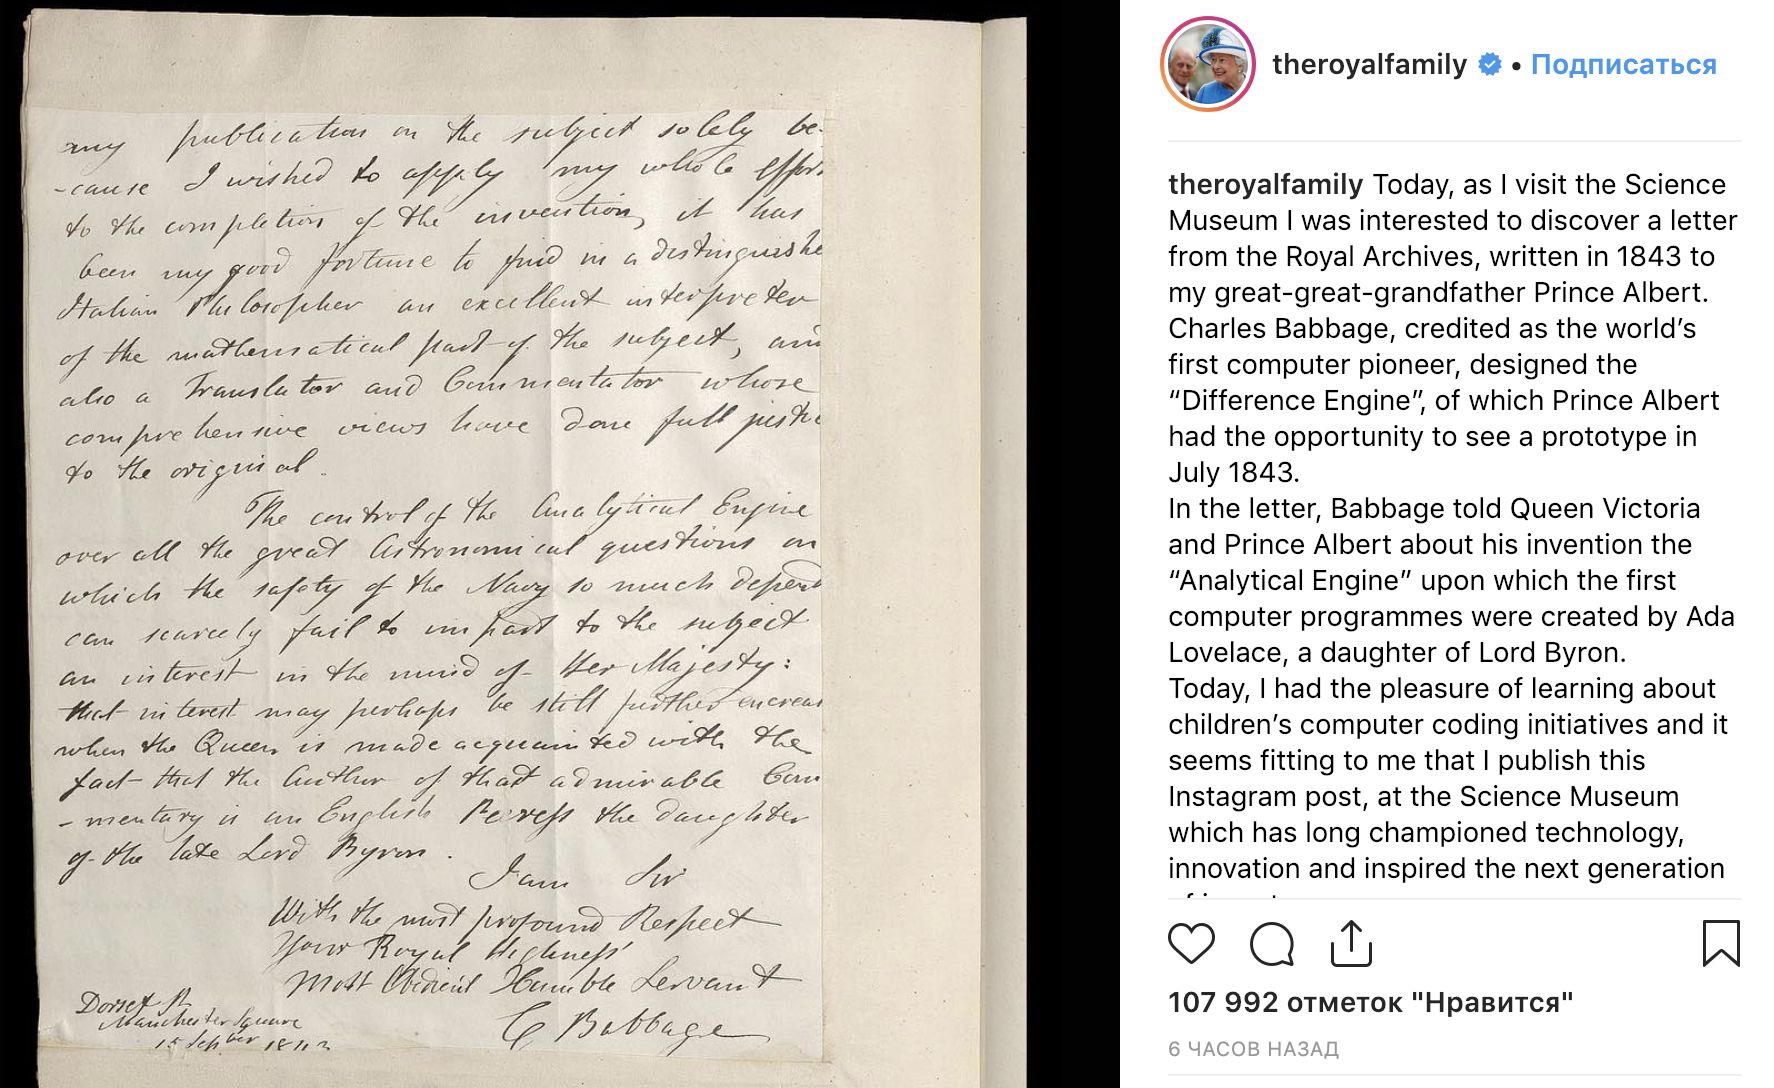 my publication on the subject solely be-
-cause I wished to apply my whole effor
to the completion of the invention, it has
been my good fortune to find in a distinguishe
Italian Philosopher an excellent interpreter
of the mathematical part of the subject, and
also a Translator and Commentator whose
comprehensive views have done full justic
to the original.
The control of the Analytical Engine
over all the great Astronomical questions on
which the safety of the Navy so much depend
can scarcely fail to impart to the subject
an interest in the mind of Her Majesty:
that interest may perhaps be still further encreas
when the Queen is made acquainted with the
fact that the Author of that admirable Com
-mentary is an English Peeress the daughter
of the late Lord Byron.
I am Sir
With the most profound Respect
Your Royal Highness'
Most Obedient Humble Servant
C Babbage
Dorset St
Manchester Square
15 Sepber 1843
theroyalfamily • Подписаться
theroyalfamily Today, as I visit the Science
Museum I was interested to discover a letter
from the Royal Archives, written in 1843 to
my great-great-grandfather Prince Albert.
Charles Babbage, credited as the world’s
first computer pioneer, designed the
“Difference Engine”, of which Prince Albert
had the opportunity to see a prototype in
July 1843.
In the letter, Babbage told Queen Victoria
and Prince Albert about his invention the
“Analytical Engine” upon which the first
computer programmes were created by Ada
Lovelace, a daughter of Lord Byron.
Today, I had the pleasure of learning about
children’s computer coding initiatives and it
seems fitting to me that I publish this
Instagram post, at the Science Museum
which has long championed technology,
innovation and inspired the next generation
107 992 отметок "Нравится"
6 ЧАСОВ НАЗАД